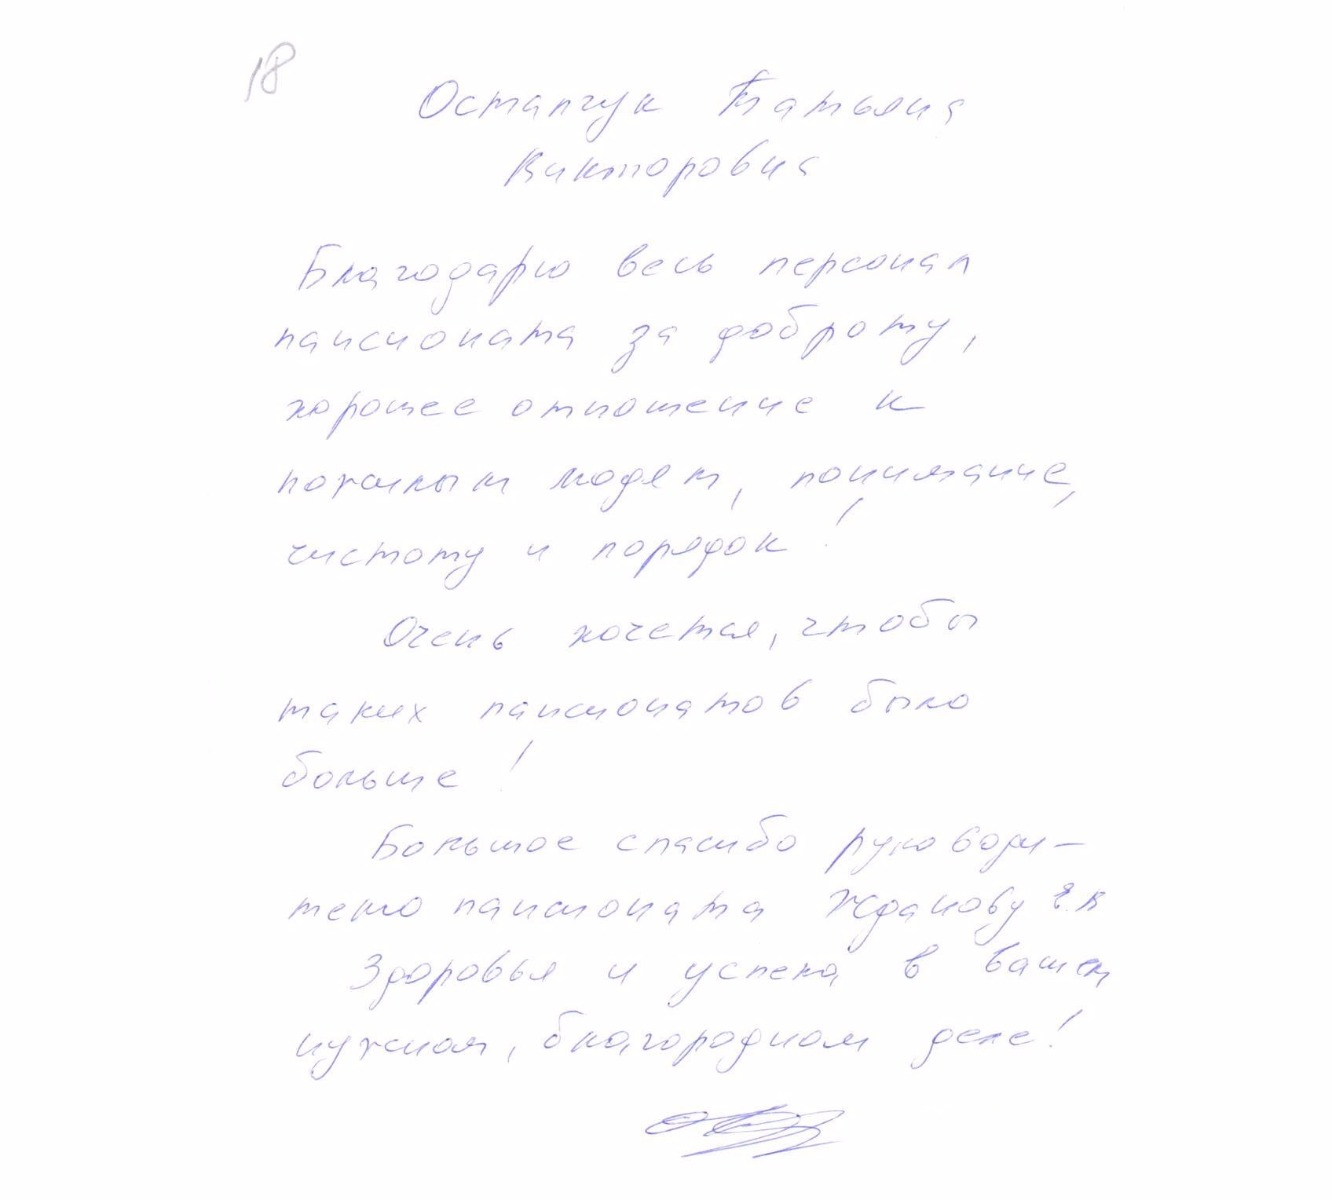 18
Остапчук Татьяна
Викторовна
Благодарю весь персонал
пансионата за доброту,
хорошее отношение к
пожилым людям, понимание,
чистоту и порядок!
Очень хочется, чтобы
таких пансионатов было
больше!
Большое спасибо руководи-
телю пансионата Жданову
Здоровья и успеха в вашем
нужном, благородном деле!